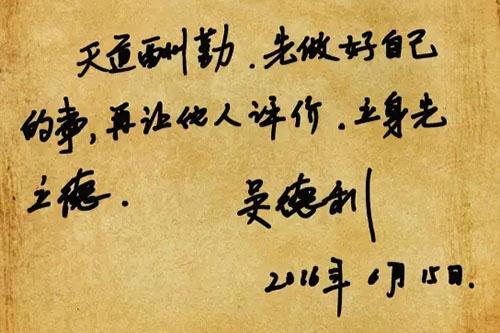 天道酬勤.先做好自己
的事,再让他人评价.立身先
立德.
吴德利
2016年6月15日.